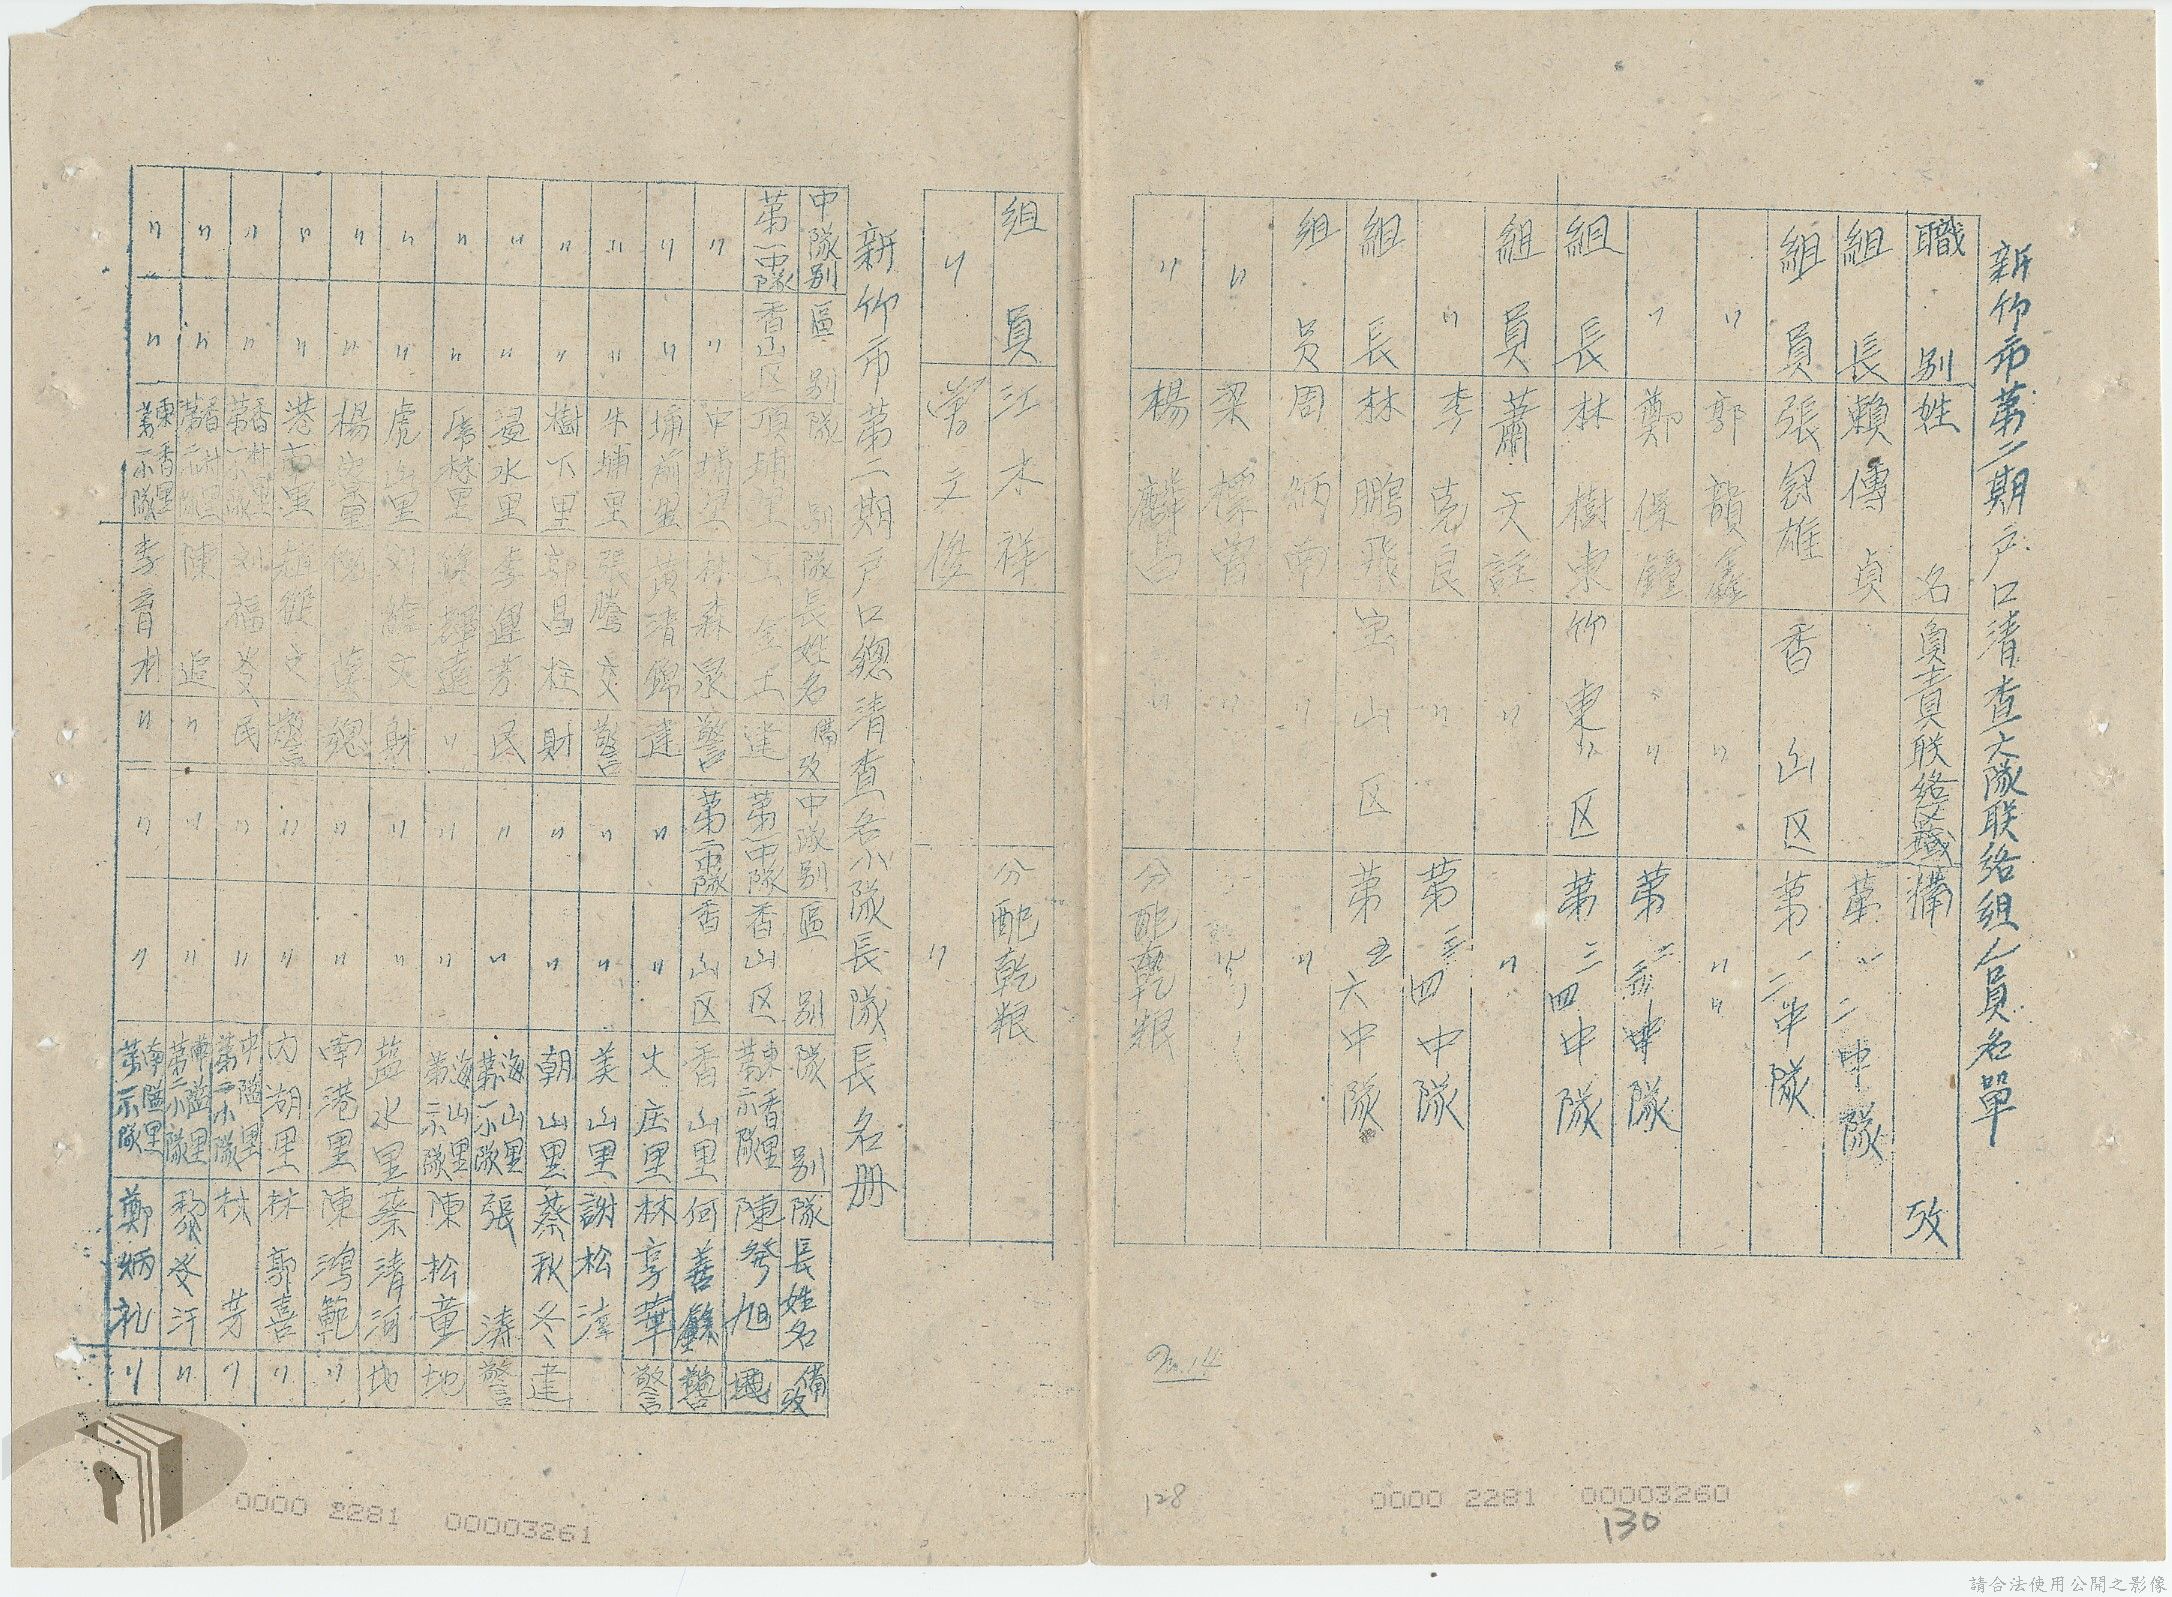 新竹市第二期户口清查大隊联络組人員名單
職別 姓名 負責联络区域 備攷
組長 賴傳貞 第一二中隊
組員 張 雄 香山区 第一二中隊
〃 郭韻鑫 〃 〃
〃 鄭保鐘 〃 第二 中隊
組長 林樹東 竹東区 第三四中隊
組員 蕭天註 〃 〃
〃 李克良 〃 第三四中隊
組長 林鵬飛 宝山区 第五六中隊
組员 周炳南 〃 〃
〃 梁標 〃
〃 楊麟昌 〃 分配乾粮
128
0000 2281 00003260
130
組員 江木祥 分配乾粮
〃 曾立俊 〃
新竹市第二期户口總清查各小隊長隊長名册
中隊別 區別 隊別 隊長姓名 備攷
第一中隊 香山区 頂埔里 王金土 建
〃 〃 中埔里 林森泉 警
〃 〃 埔前里 黃清錦 建
〃 〃 牛埔里 張騰交 警
〃 〃 樹下里 郭昌柱 財
〃 〃 浸水里 李運芳 民
〃 〃 虎林里
〃 〃 虎山里 刘維文 財
〃 〃 楊寮里 總
〃 〃 港南里 趙 文 警
〃 〃 香村里第一小隊 刘福 民
〃 〃 香村里第二小隊 陳追 〃
〃 〃 東香里第一小隊 李育材 〃
中隊別 區別 隊別 隊長姓名 備攷
第一中隊 香山区 東香里第二小隊 陳發旭
第二中隊 香山区 香山里 何善 警
〃 〃 大庄里 林享華 警
〃 〃 美山里 謝松濤
〃 〃 朝山里 蔡秋冬 建
〃 〃 海山里第一小隊 張濤 警
〃 〃 海山里第二小隊 陳松童 地
〃 〃 盐水里 蔡清河 地
〃 〃 南港里 陳鴻範 〃
〃 〃 内湖里 林郭喜 〃
〃 〃 中隘里第一小隊 林芳 〃
〃 〃 第二小隊 黎 汗 〃
〃 〃 南隘里第二小隊 鄭炳礼 〃
0000 2281 00003261
請合法使用公開之影像